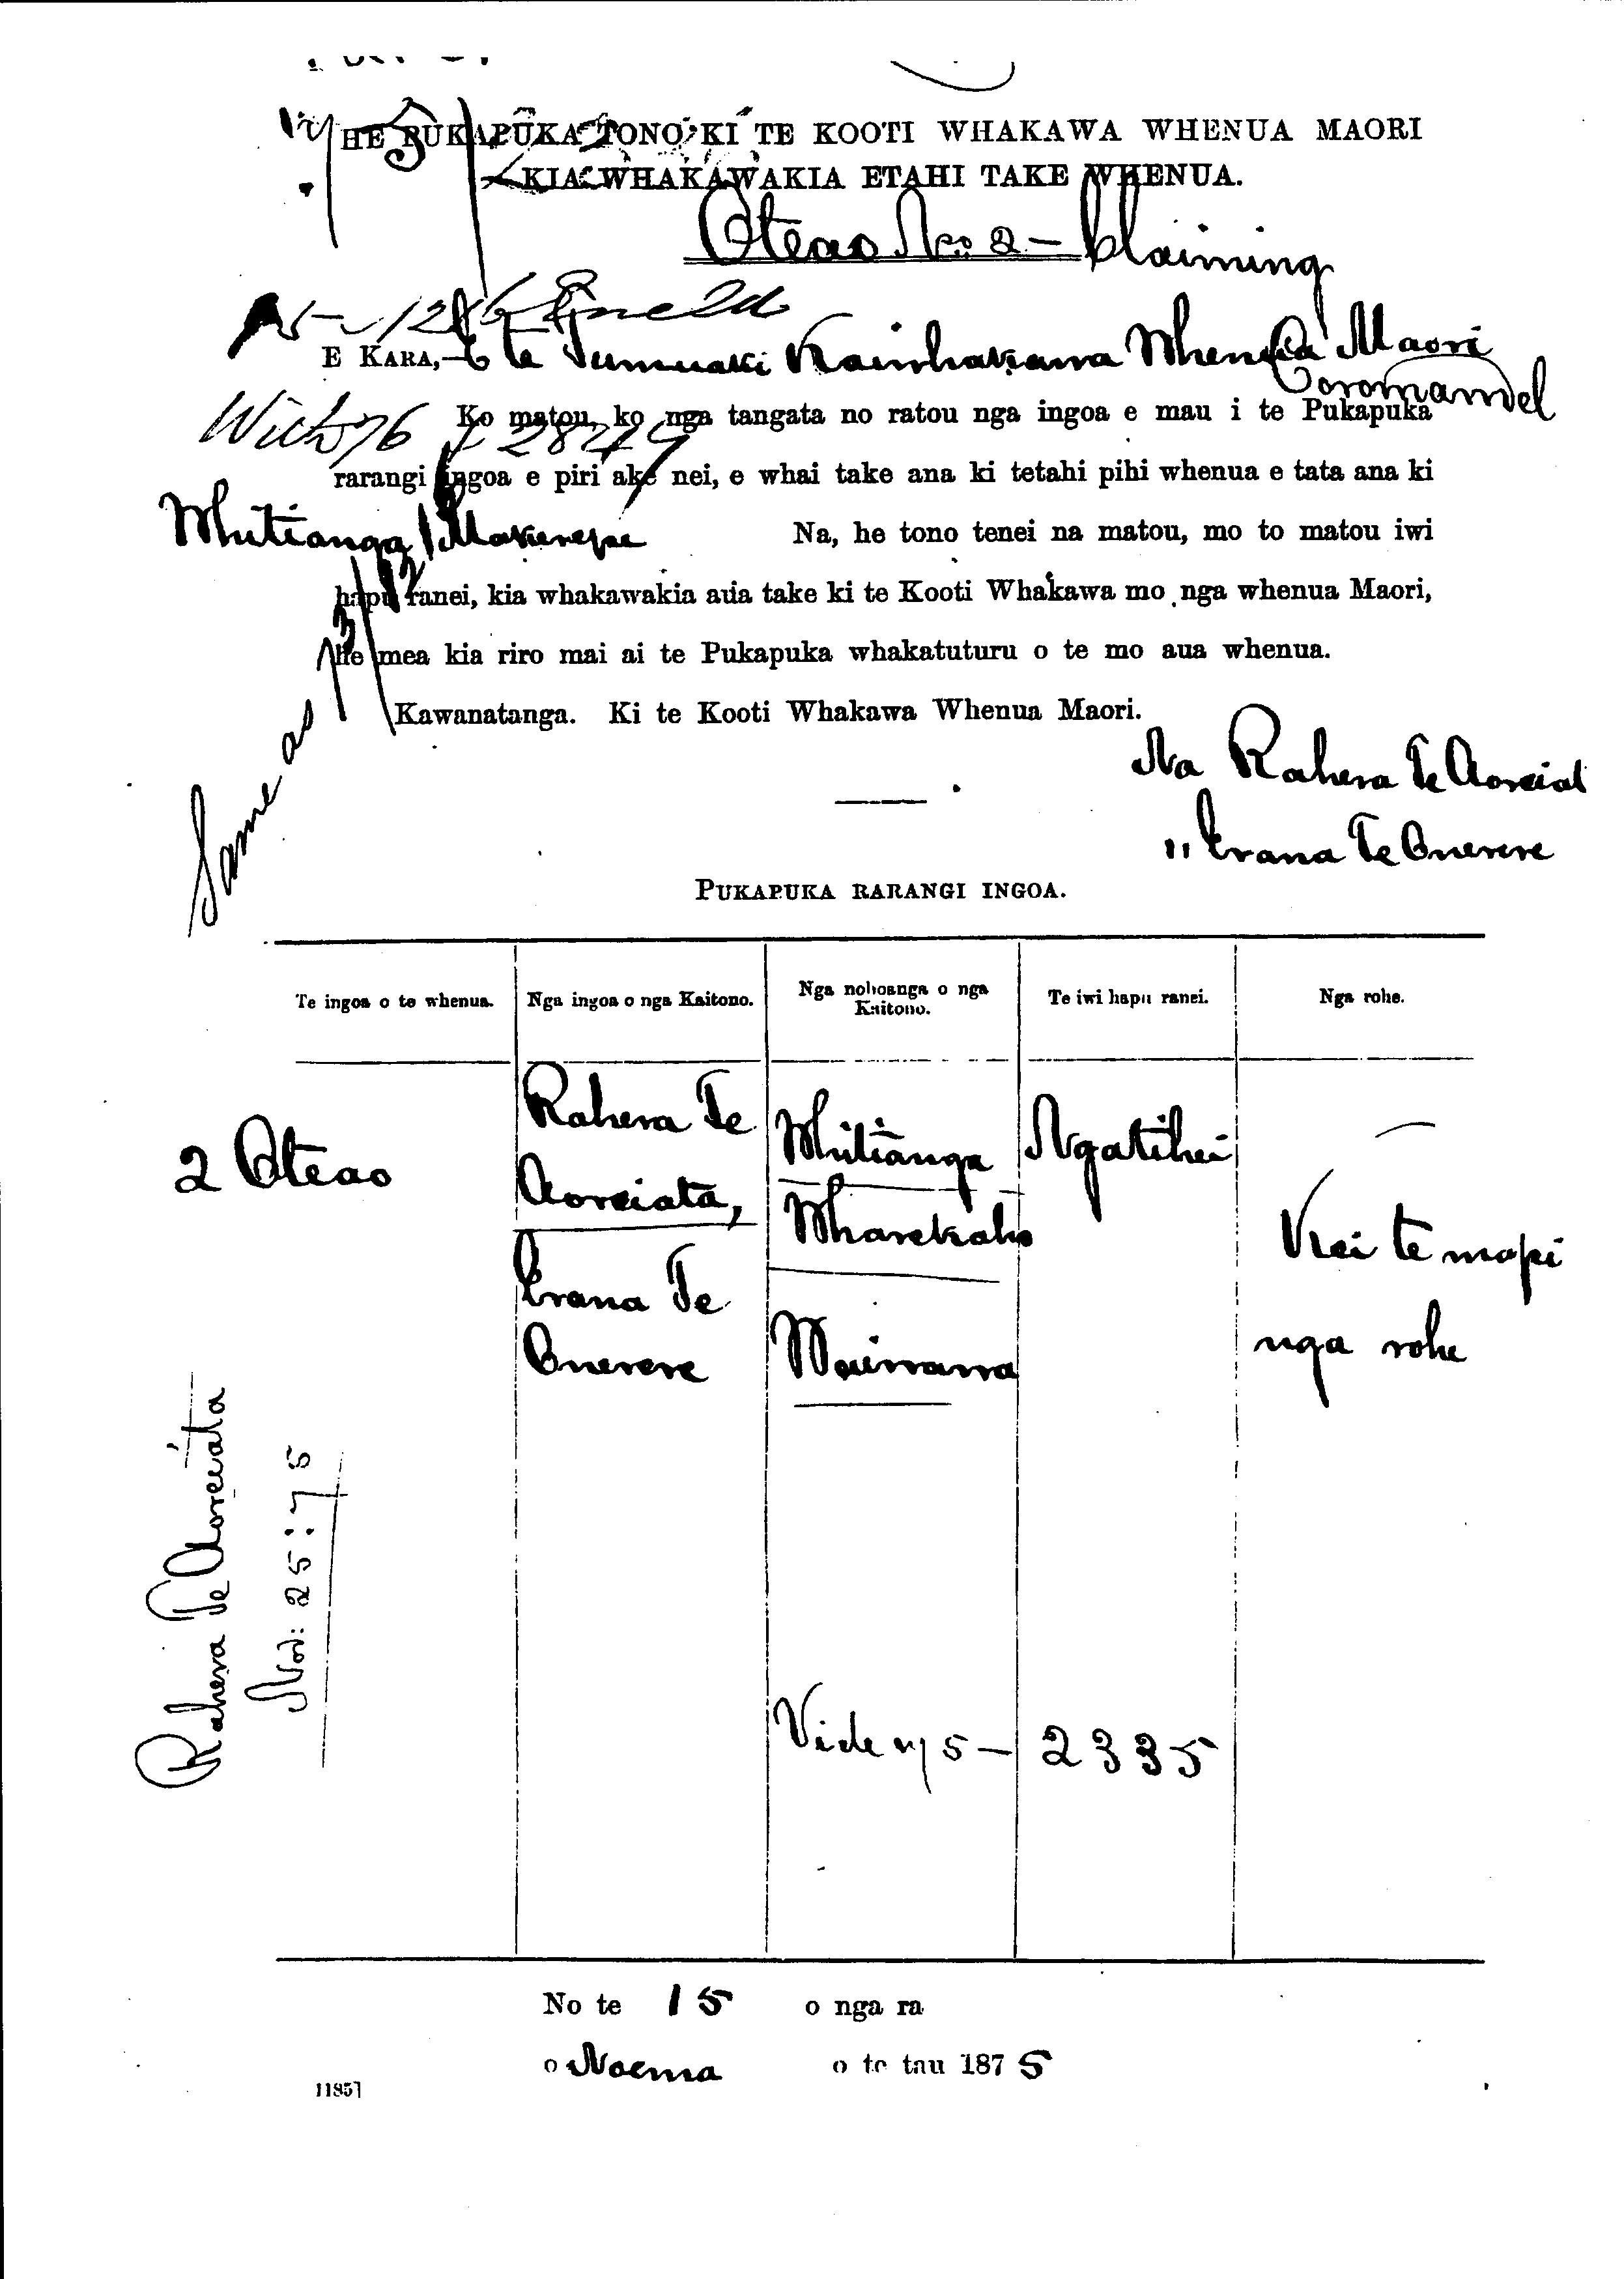 HE PUKAPUKA TONO KI TE KOOTI WHAKAWA WHENUA MAORI
KIA WHAKAWAKIA ETAHI TAKE WHENUA.
Oteao No: 2 - Claiming
E KARA,— E te Tumuaki Kaiwhakawa Whenua Maori
Coromandel
Ko matou, ko nga tangata no ratou nga ingoa e mau i te Pukapuka
rarangi ingoa e piri ake nei, e whai take ana ki tetahi pihi whenua e tata ana ki
Whitianga Na, he tono tenei na matou, mo to matou iwi
hapu ranei, kia whakawakia aua take ki te Kooti Whakawa mo nga whenua Maori,
he mea kia riro mai ai te Pukapuka whakatuturu o te mo aua whenua.
Kawanatanga. Ki te Kooti Whakawa Whenua Maori.
Same as
Na Rahera Te Aoreiat
" Erana Te Onerere
PUKAPUKA RARANGI INGOA.
Te ingoa o te whenua. Nga ingoa o nga Kaitono. Nga nohoanga o nga Kaitono. Te iwi hapu ranei. Nga rohe.
2 Oteao
Rahera Te
Aoreiata,
Erana Te
Onerere
Whitianga
Wharekaho
Wairrarra
Ngatihei
Kei te mapi
nga rohe
Rahera Te Aoreiata
Nov: 25: 75
Vide 75 - 2335
No te 15 o nga ra
o Noema o te tau 1875
1185]